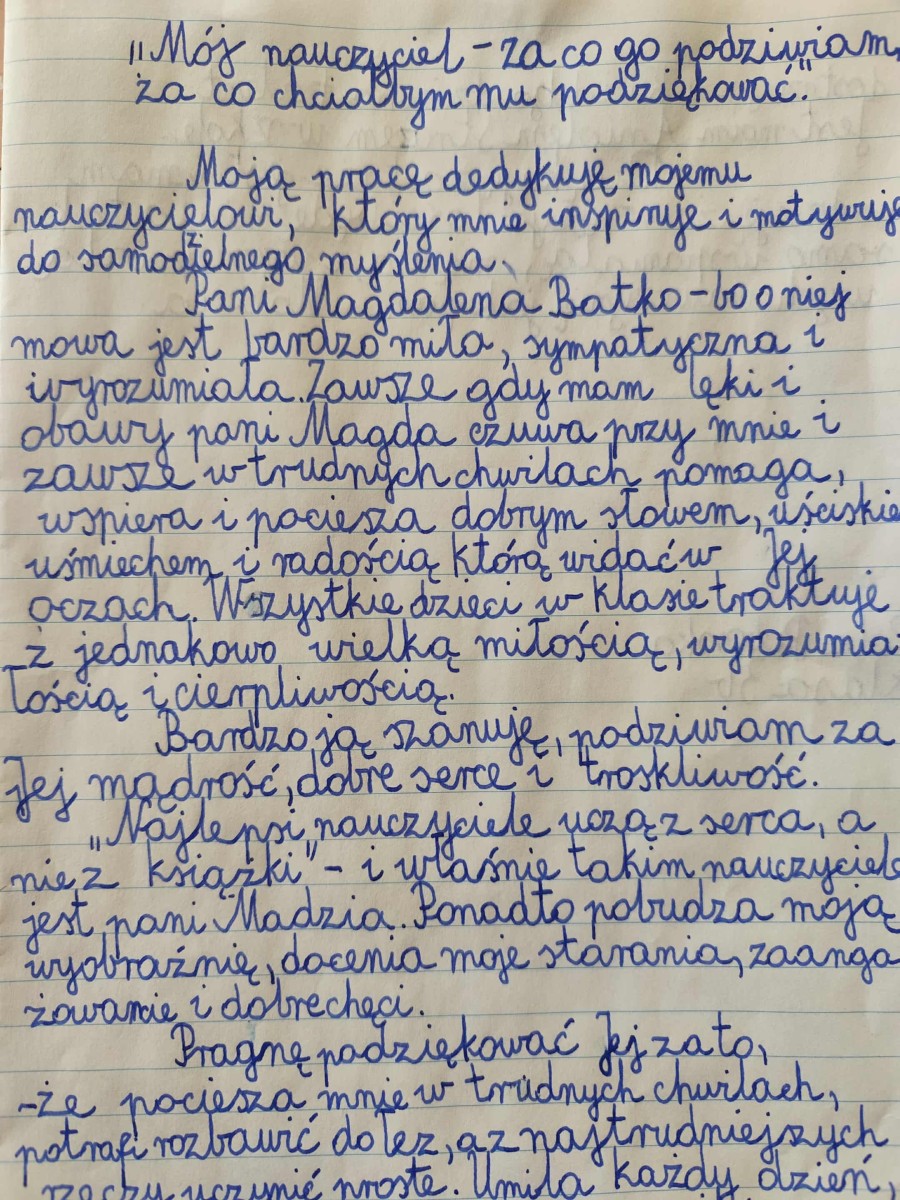 "Mój nauczyciel - za co go podziwiam,
za co chciałbym mu podziękować".
Moją pracę dedykuję mojemu
nauczycielowi, który mnie inspiruje i motywuje
do samodzielnego myślenia.
Pani Magdalena Batko - bo o niej
mowa jest bardzo miła, sympatyczna i
wyrozumiała. Zawsze gdy mam lęki i
obawy pani Magda czuwa przy mnie i
zawsze w trudnych chwilach pomaga,
wspiera i pociesza dobrym słowem, uściskie
uśmiechem i radością którą widać w Jej
oczach. Wszystkie dzieci w klasie traktuje
z jednakowo wielką miłością, wyrozumia
łością i cierpliwością.
Bardzo ją szanuję, podziwiam za
Jej mądrość, dobre serce i troskliwość.
"Najlepsi nauczyciele uczą z serca, a
nie z książki" - i właśnie takim nauczyciele
jest pani Madzia. Ponadto pobudza moją
wyobraźnię, docenia moje starania, zaanga
żowanie i dobre chęci.
Pragnę podziękować Jej za to,
-że pociesza mnie w trudnych chwilach,
potrafi rozbawić do łez, a z najtrudniejszych
rzeczy uczynić proste. Umila każdy dzień,